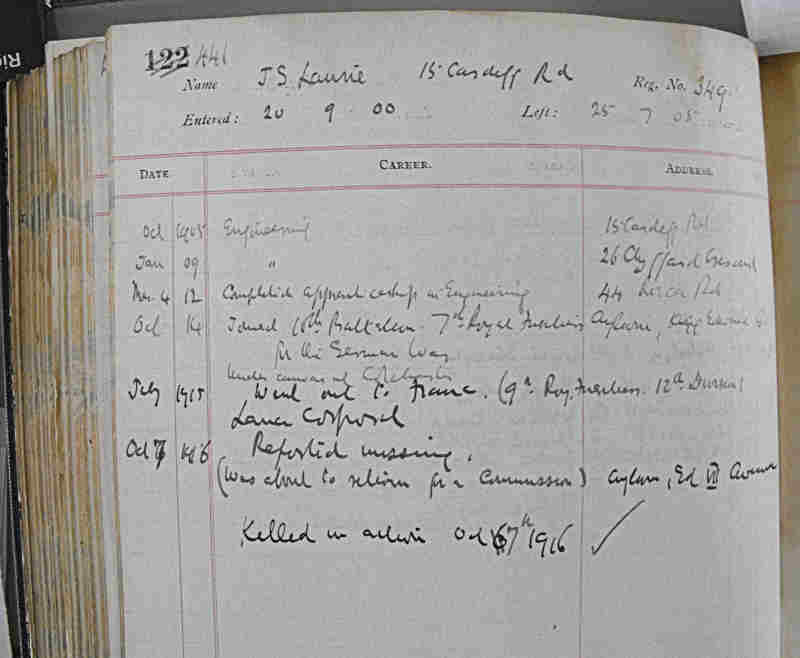 122 A41
Name J S Laurie 15 Cardiff Rd Reg. No. 349
Entered: 20 9 00 Left: 25 7 05
DATE. CAREER. ADDRESS.
Oct 1905 Engineering 15 Cardiff Rd
Jan 09 " 26 Clyffard Crescent
Mar 4 12 Completed apprenticeship in Engineering 44 Rd
Oct 14 Joined Battalion 7th Royal Fusiliers Aylown, King Edward
for the German War
Under canvas at Colchester
July 1915 Went out to France. (9th Roy. Fusiliers. 12th Division)
Lance Corporal
Oct 7 1916 Reported missing.
(was about to return for a Commission) Aylown, Ed VII Avenue
Killed in action Oct 7th 1916 ✓